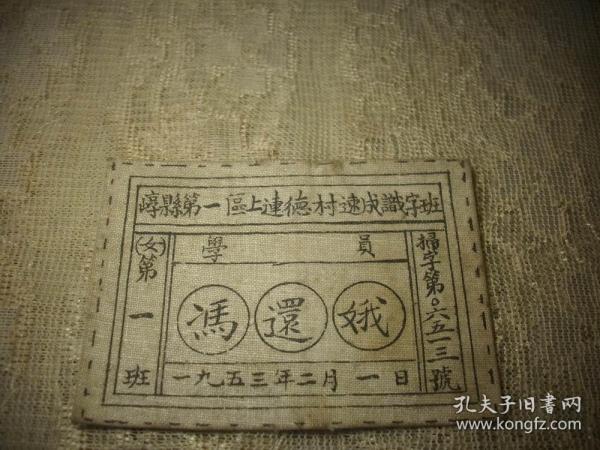 崞縣第一區上連德村速成識字班
㊛第一班
學員
馮還娥
一九五三年二月一日
掃字第〇六五一三號
孔夫子旧書网
www.kongfz.com